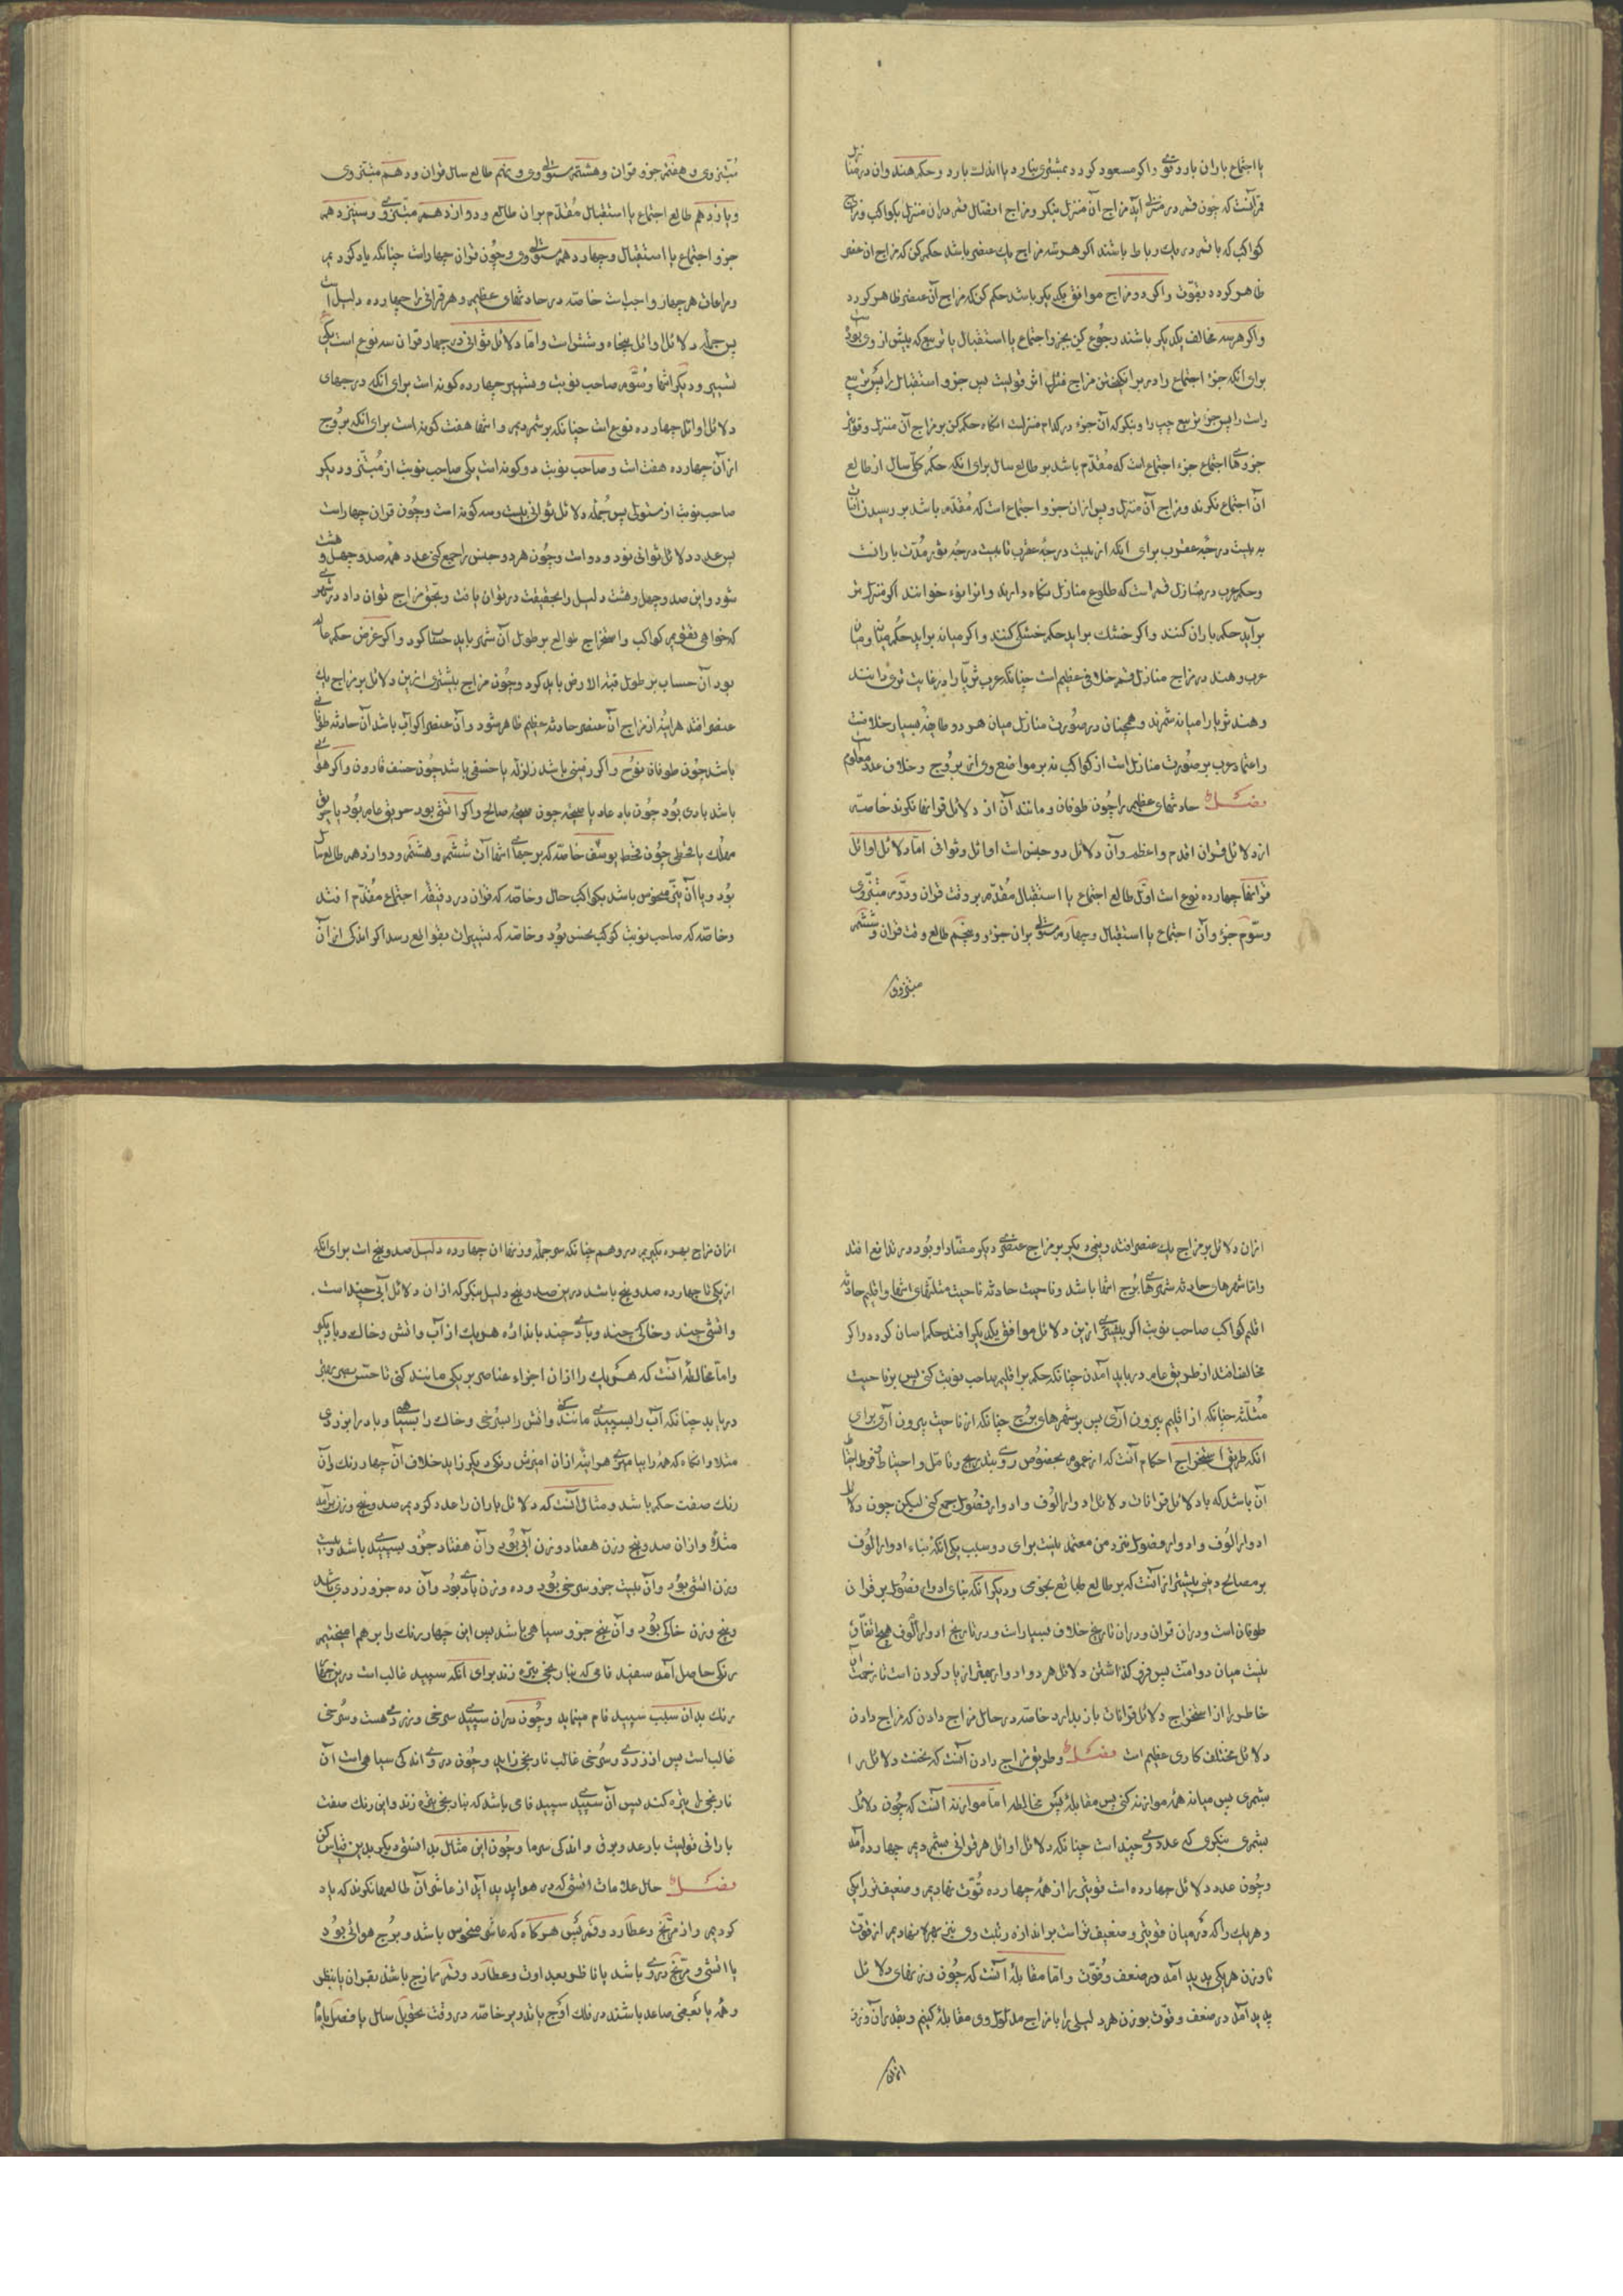 یا اجتماع باران بارد قوی واکر مسعود کردد بمشتری نبارد یا اندک بارد وحکم هند وان در منازل
قمر آنست که چون قمر در منزلی اید مزاج آن منزل بنکر ومزاج اتصال قمر در ان منزل بکواکب ومزاج
کواکب که با قمر در یک رباط باشند اکر هر سه مزاج یک عنصر باشد حکم کن که مزاج ان عنصر
ظاهر کردد بقوت واکر دو مزاج موافق یکدیکر باشد حکم کن که مزاج آن عنصر ظاهر کردد
واکر هر سه مخالف یکدیکر باشند رجوع کن بجزو اجتماع یا استقبال یا تربیع که پیش از وی بودست
برای انکه جزء اجتماع را در برانکیختن مزاج فعلی اثر قویست پس جزو استقبال را پس تربیع
راست را پس جزء تربیع چپ را وبنکر که آن جزء در کدام منزلست انکاه حکم کن بر مزاج آن منزل وقویتر
جزوها اجتماع جزء اجتماع است که مقدم باشد بر طالع سال برای انکه حکم کل سال از طالع
ان اجتماع نکرند ومزاج آن منزل وپس از ان جزو اجتماع است که مقدم باشد بر رسیدن آفتاب
به بیست درجه عقرب برای انکه از بیست درجه عقرب تا بیست درجه ثور مدت بارانست
وحکم عرب در منازل قمر است که طلوع منازل نکاه دارند وانرا نوء خوانند اکر منزل تر
بر آید حکم باران کنند واکر خشک براید حکم خشکی کنند واکر میانه براید حکم میانه ومیان
عرب وهند در مزاج منازل قمر خلافی عظیم است چنانکه عرب ثریا را در غایت تری دانند
وهند ثریا را میانه شمرند وهمچنان در صورت منازل میان هر دو طایفه بسیار خلافست
واعتماد عرب بر صورت منازل است از کواکب نه بر مواضع وی از بروج وخلاف عدد معلومست
فصل حادثهای عظیم را چون طوفان ومانند آن از دلائل قرانها نکرند خاصه
از دلائل قران اقدم واعظم وآن دلائل دو جنس است اوائل وثوانی اما دلائل اوائل
قرانها چهارده نوع است اول طالع اجتماع یا استقبال مقدم بر وقت قران ودوم مبتزوی
وسوم جزء وآن اجتماع یا استقبال وچهارم مستولی بران جزو وپنجم طالع وقت قران وششم
مبتزوی
مبتزوی وهفتم جزو قران وهشتم مستولی وی ونهم طالع سال قران ودهم مبتزوی
ویازدهم طالع اجتماع یا استقبال مقدم بران طالع ودوازدهم مبتزوی وسیزدهم
جزو اجتماع یا استقبال وچهاردهم مستولی وی وچون قران چهاراست چنانکه یاد کردیم
ومراعات هر چهار واجبست خاصه در حادثهای عظیم وهر قرانی را چهارده دلیل است
پس جمله دلائل اوائل پنجاه وشش است واما دلائل ثوانی در چهار قران سه نوع است یکی
تسییر ودیکر انتها وسوم صاحب نوبت وتسییر چهارده کونه است برای انکه درجهای
دلائل اوائل چهارده نوع است چنانکه بر شمردیم وانتها هفت کونه است برای انکه بروج
از آن چهارده هفت است وصاحب نوبت دو کونه است یکی صاحب نوبت از مبتز ودیکر
صاحب نوبت از مستولی پس جمله دلائل ثوانی بیست وسه کونه است وچون قران چهاراست
پس عدد دلائل ثوانی نود ودو است وچون هر دو جنس را جمع کنی عدد همه صد وچهل وهشت
شود واین صد وچهل وهشت دلیل را بحقیقت در توان یافت وبحق مزاج توان داد در شهری
که خواهی تقویم کواکب واستخراج طوالع بر طول آن شهر باید حساب کرد واکر غرض حکم عالم
بود آن حساب بر طول قبة الارض باید کرد وچون مزاج بیشتری ازین دلائل بر مزاج یک
عنصر افتد هراینه از مزاج آن عنصر حادثه عظیم ظاهر شود وآن عنصر اکر آب باشد آن حادثه طوفانی
باشد چون طوفان نوح واکر زمینی باشد زلزله یا خسفی باشد چون خسف قارون واکر هوائی
باشد بادی بود چون باد عاد یا صیحه چون صیحه صالح واکر اتشی بود حریق عام بود یا حربی
مهلک یا قحطی چون قحط یوسف خاصه که برجهاء انتها آن ششم وهشتم ودوازدهم طالع سال
بود ویا آن نیز منحوس باشد بکواکب حال وخاصه که قران در دقیقه اجتماع مقدم افتد
وخاصه که صاحب نوبت کوکب نحس بود وخاصه که تسییرات بقواطع رسد اکر اندکی از آن
ازان دلائل بر مزاج یک عنصر افتد ونیمی دیکر بر مزاج عنصری دیکر متضاد او بود در تدافع افتد
واما شهرهای حادثه شهرهای برج انتها باشد وناحیت حادثه ناحیت مثلثهای انتها واقلیم حادثه
اقلیم کواکب صاحب نوبت اکر بیشتری ازین دلائل موافق یکدیکر افتد حکم اسان کردد واکر
مخالف افتد از طریق عام در باید آمدن چنانکه حکم بر اقلیم صاحب نوبت کنی پس بر ناحیت
مثلثه چنانکه از اقلیم بیرون آری پس بر شهرهای برج چنانکه از ناحیت بیرون آری برای
انکه طریق استخراج احکام آنست که از عموم بخصوص روی بتدریج وتامل واحتیاط وفرط ایضا
آن باشد که با دلائل قرانات دلائل ادوار الوف وادوار فصول جمع کنی لیکن چون دلائل
ادوار الوف وادوار فصول نزد من معتمد نیست برای دو سبب یکی انکه بناء ادوار الوف
بر مصالح دینی بیشتر از آنست که بر طالع طبائع نجومی ودیکر انکه بنای ادوار فصول بر قران
طوفان است ودران قران ودران تاریخ خلاف بسیار است ودر تاریخ ادوار الوف هیچ اتفاق
نیست میان دو امت پس فرو کذاشتن دلائل هر دو ادوار بهتر از یاد کردن است تا زحمت آن
خاطر را از استخراج دلائل قرانات باز ندارد خاصه در حال مزاج دادن که مزاج دادن
دلائل مختلف کاری عظیم است فصل وطریق مزاج دادن آنست که نخست دلائل را
بشمری پس میانه همه موازنه کنی پس مقابله پس مخالطه اما موازنه آنست که چون دلائل
بشمری بنکری که عدد وی چند است چنانکه دلائل اوائل هر قرانی بشمردیم چهارده آمد
وچون عدد دلائل چهارده است قویتر را از همه چهارده قوت نهادیم وضعیفتر را یکی
وهر یک را که در میان قویتر وضعیفتر است بر اندازه رتبت وی نیز بهره نهادیم از قوت
تا وزن هر یکی پدید آمد در ضعف وقوت واما مقابله آنست که چون وزنهای دلائل
پدید آمد در ضعف وقوت بوزن هر دلیلی را با مزاج مدلول وی مقابله کنیم وبقدر آن وزن
ازان
ازان مزاج بهره بکیریم در وهم چنانکه سر جمله وزنها ان چهارده دلیل صد وپنج است برای انکه
از یکی تا چهارده صد وپنج باشد درین صد وپنج دلیل بنکر که ازان دلائل آبی چند است
واتشی چند وخاکی چند وبادی چند باندازه هر یک از آب واتش وخاک وباد بکیر
واما مخالطه آنست که هر یک را ازان اجزاء عناصر بر یکی مانند کنی تا حس بصر بهتر
دریابد چنانکه آب را بسپیدی مانند کنی واتش را بسرخی وخاک را بسیاهی وباد را بزردی
مثلا وانکاه که همه را بیامیزی هراینه ازان امیزش رنکی دیکر زاید خلاف آن چهار رنک وآن
رنک صفت حکم باشد ومثال آنست که دلائل باران را عدد کردیم صد وپنج وزن برآمد
مثلا وازان صد وپنج وزن هفتاد وزن آبی بود وآن هفتاد جزو سپیدی باشد وبیست
وزن اتشی بود وآن بیست جزو سرخی بود وده وزن بادی بود وآن ده جزو زردی باشد
وپنج وزن خاکی بود وآن پنج جزو سیاهی باشد پس این چهار رنک را بر هم امیختیم
رنکی حاصل آمد سفید فامی که بنارنجی تیره زند برای انکه سپید غالب است درین جمله
رنک بدان سبب سپید فام مینماید وچون دران سپیدی سرخی وزردی هست وسرخی
غالب است پس از زردی وسرخی غالب نارنجی زاید وچون در وی اندکی سیاهی است آن
نارنجی را تیره کند پس آن سپیدی سپید فامی باشد که بنارنجی تیره زند واین رنک صفت
بارانی قویست با رعد وبرق واندکی سرما وچون این مثال بدانستی دیکر بدین قیاس کن
فصل حال علامات اتشی که در هوا پدید آید از عاشر آن طالعها نکرند که یاد
کردیم واز مریخ وعطارد وقمر پس هرکاه که عاشر منحوس باشد وبرج هوائی بود
یا اتشی ومریخ در وی باشد یا ناظر بعداوت وعطارد وقمر ممازج باشد بقران یا بنظر
وهمه یا بعضی صاعد باشند در فلک اوج یا تدویر خاصه در وقت تحویل سال یا فصل یا ماه